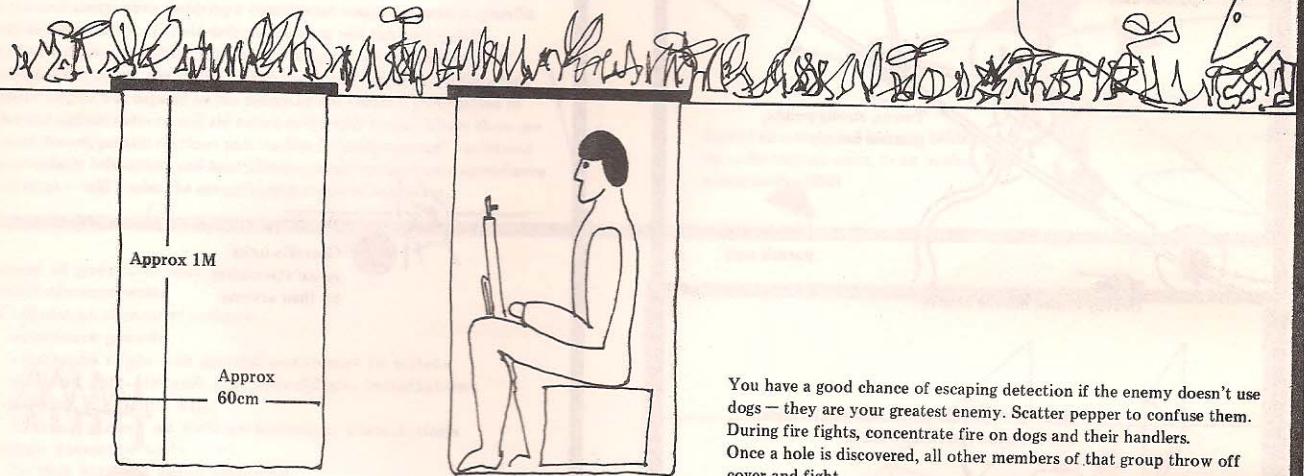 Approx 1M
Approx
60cm
You have a good chance of escaping detection if the enemy doesn't use
dogs — they are your greatest enemy. Scatter pepper to confuse them.
During fire fights, concentrate fire on dogs and their handlers.
Once a hole is discovered, all other members of that group throw off
cover and fight.